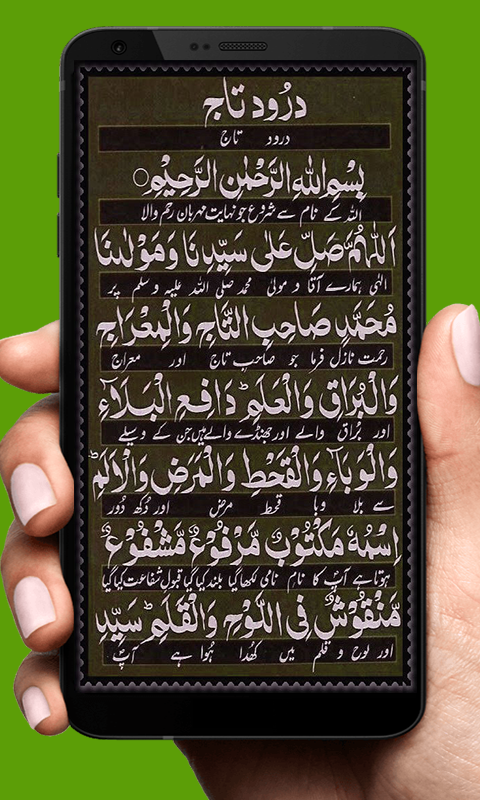 درُود تاج
درود تاج
بِسْمِ اللهِ الرَّحْمٰنِ الرَّحِيْمِ
اللہ کے نام سے شروع جو نہایت مہربان رحم والا
اَللّٰهُمَّ صَلِّ عَلٰى سَيِّدِنَا وَمَوْلٰىنَا
الٰہی ہمارے آقا و مولیٰ محمد صلی اللہ علیہ وسلم پر
مُحَمَّدٍ صَاحِبِ التَّاجِ وَالْمِعْرَاجِ
رحمت نازل فرما جو صاحب تاج اور معراج
وَالْبُرَاقِ وَالْعَلَمِ ؕ دَافِعِ الْبَلَآءِ
اور بُراق والے اور جھنڈے والے ہیں جن کے وسیلے
وَالْوَبَآءِ وَالْقَحْطِ وَالْمَرَضِ وَالْاَلَمِ ؕ
سے بلا وبا قحط مرض اور دُکھ دُور
اِسْمُهٗ مَكْتُوْبٌ مَّرْفُوْعٌ مَّشْفُوْعٌ
ہوتا ہے آپ کا نام نامی لکھا گیا بلند کیا گیا قبول شفاعت کیا گیا
مَّنْقُوْشٌ فِى اللَّوْحِ وَالْقَلَمِ ؕ سَيِّدِ
اور لوح و قلم میں کھُدا ہُوا ہے آپ